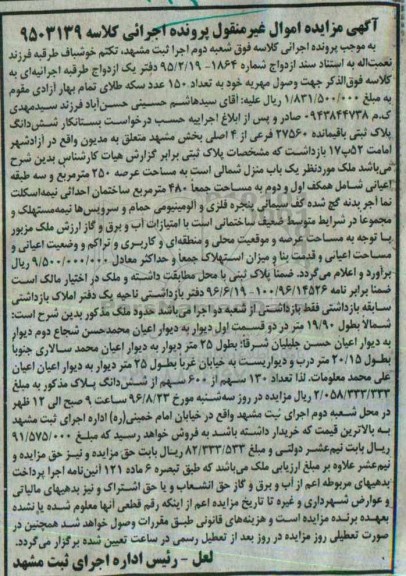 آگهی مزایده اموال غیر منقول پرونده اجرائی کلاسه ۹۵۰۳۱۳۹
به موجب پرونده اجرائی کلاسه فوق شعبه دوم اجرا ثبت مشهد، تکتم خوشباف طرقبه فرزند
نعمت‌اله به استناد سند ازدواج شماره ۱۸۶۴- ۹۵/۲/۱۹ دفتر یک ازدواج طرقبه اجرائیه‌ای به
کلاسه فوق‌الذکر جهت وصول مهریه خود به تعداد ۱۵۰ عدد سکه طلای تمام بهار آزادی مقوم
به مبلغ ۱/۸۳۱/۵۰۰/۰۰۰ ریال علیه: اقای سیدهاشم حسینی حسن‌آباد فرزند سیدمهدی
ک.م ۰۹۴۳۸۴۴۷۳۸ صادر و پس از ابلاغ اجراییه حسب درخواست بستانکار شش‌دانگ
پلاک ثبتی باقیمانده ۲۷۵۶۰ فرعی از ۴ اصلی بخش مشهد متعلق به مدیون واقع در آزادشهر
امامت ۵۲پ۱۷ بازداشت که مشخصات پلاک ثبتی برابر گزارش هیات کارشناس بدین شرح
می‌باشد ملک موردنظر یک باب منزل شمالی است به مساحت عرصه ۲۵۰ مترمربع و سه طبقه
اعیانی شامل همکف اول و دوم به مساحت جمعاً ۴۸۰ مترمربع ساختمان احداثی نیمه‌اسکلت
نما آجر بدنه گچ شده کف سیمانی پنجره فلزی و الومینیومی حمام و سرویس‌ها نیمه‌مستهلک و
مجموعاً در شرایط متوسط ضعیف ساختمانی است با امتیازات آب و برق و گاز ارزش ملک مزبور
با توجه به مساحت عرصه و موقعیت محلی و منطقه‌ای و کاربری و تراکم و وضعیت اعیانی و
مساحت اعیانی و قدمت بنا و میزان استهلاک جمعاً و حداکثر معادل ۹/۵۰۰/۰۰۰/۰۰۰ ریال
برآورد و اعلام می‌گردد. ضمناً پلاک ثبتی با محل مطابقت داشته و ملک در اختیار مالک است
ضمنا برابر نامه ۱۰۰/۹۶/۱۴۵۲۶- ۹۶/۶/۱۹ دفتر بازداشتی ناحیه یک دفتر املاک بازداشتی
سابقه بازداشتی فقط بازداشتی از شعبه دو اجرا می‌باشد حدود ملک مذکور بدین شرح است:
شمالا بطول ۱۹/۹۰ متر در دو قسمت اول دیوار به دیوار اعیان محمدحسن شجاع دوم دیوار
به دیوار اعیان حسن جلیلیان شرقا: بطول ۲۵ متر دیوار به دیوار اعیان محمد سالاری جنوبا
بطول ۲۰/۱۵ متر درب و دیواریست به خیابان غربا بطول ۲۵ متر دیوار به دیوار اعیان اعیان
علی محمد معلومات. لذا تعداد ۱۳۰ سهم از ۶۰۰ سهم از شش‌دانگ پلاک مذکور به مبلغ
۲/۰۵۸/۳۳۳/۳۳۳ ریال مزایده در روز سه‌شنبه مورخ ۹۶/۸/۲۳ ساعت ۹ صبح الی ۱۲ ظهر
در محل شعبه دوم اجرای ثبت مشهد واقع در خیابان امام خمینی(ره) اداره اجرای ثبت مشهد
به بالاترین قیمت که خریدار داشته باشد به فروش خواهد رسید که مبلغ ۹۱/۵۷۵/۰۰۰
ریال بابت نیم‌عشر دولتی و مبلغ ۸۲/۳۳۳/۵۳۳ ریال بابت حق مزایده و نیز حق مزایده و
نیم‌عشر علاوه بر مبلغ ارزیابی ملک می‌باشد که طبق تبصره ۶ ماده ۱۲۱ آئین‌نامه اجرا پرداخت
بدهیهای مربوطه اعم از آب و برق و گاز حق انشعاب و یا حق اشتراک و نیز بدهیهای مالیاتی
و عوارض شهرداری و غیره تا تاریخ مزایده اعم از اینکه رقم قطعی آنها معلوم شده یا نشده
بعهده برنده مزایده است و هزینه‌های قانونی طبق مقررات وصول خواهد شد همچنین در
صورت تعطیلی روز مزایده در روز بعد از تعطیل رسمی در ساعت تعیین شده برگزار می‌گردد.
لعل - رئیس اداره اجرای ثبت مشهد